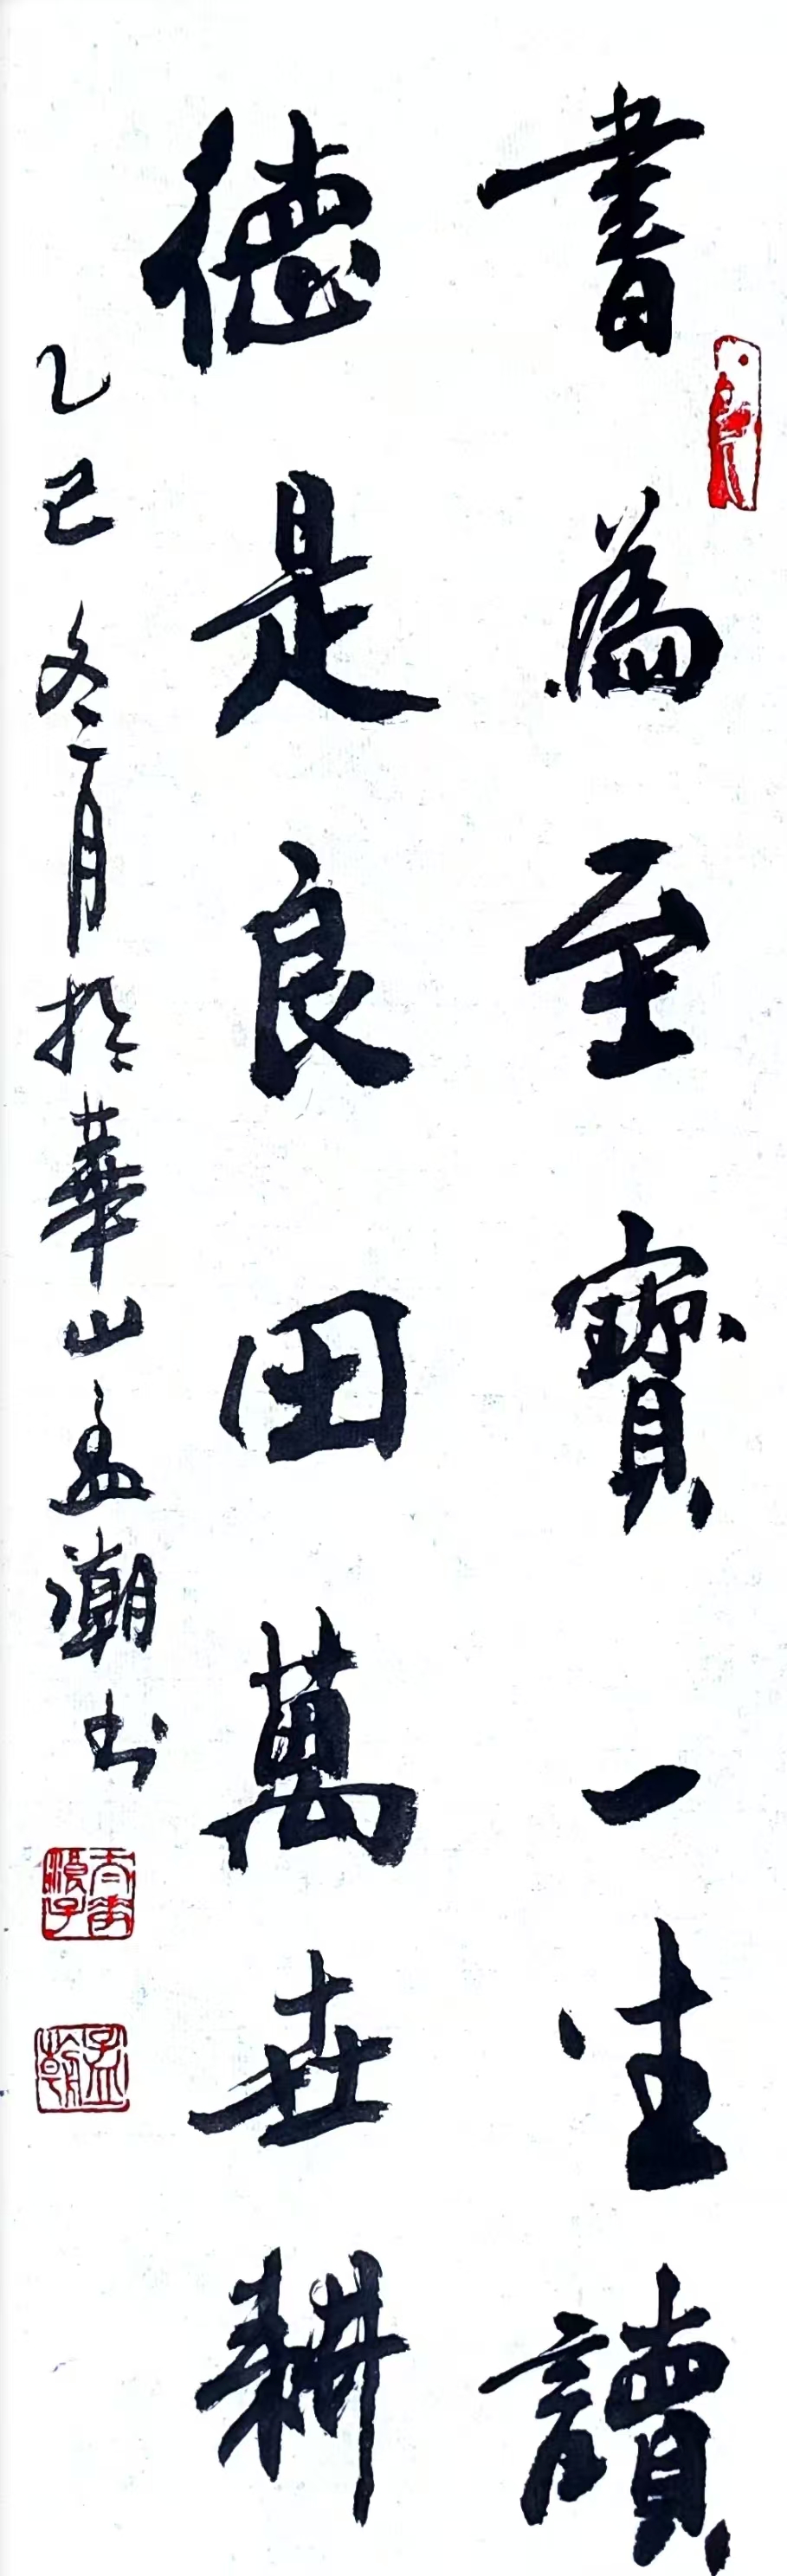 書為至寶一生讀
德是良田萬世耕
乙巳冬月於華山孟潮書